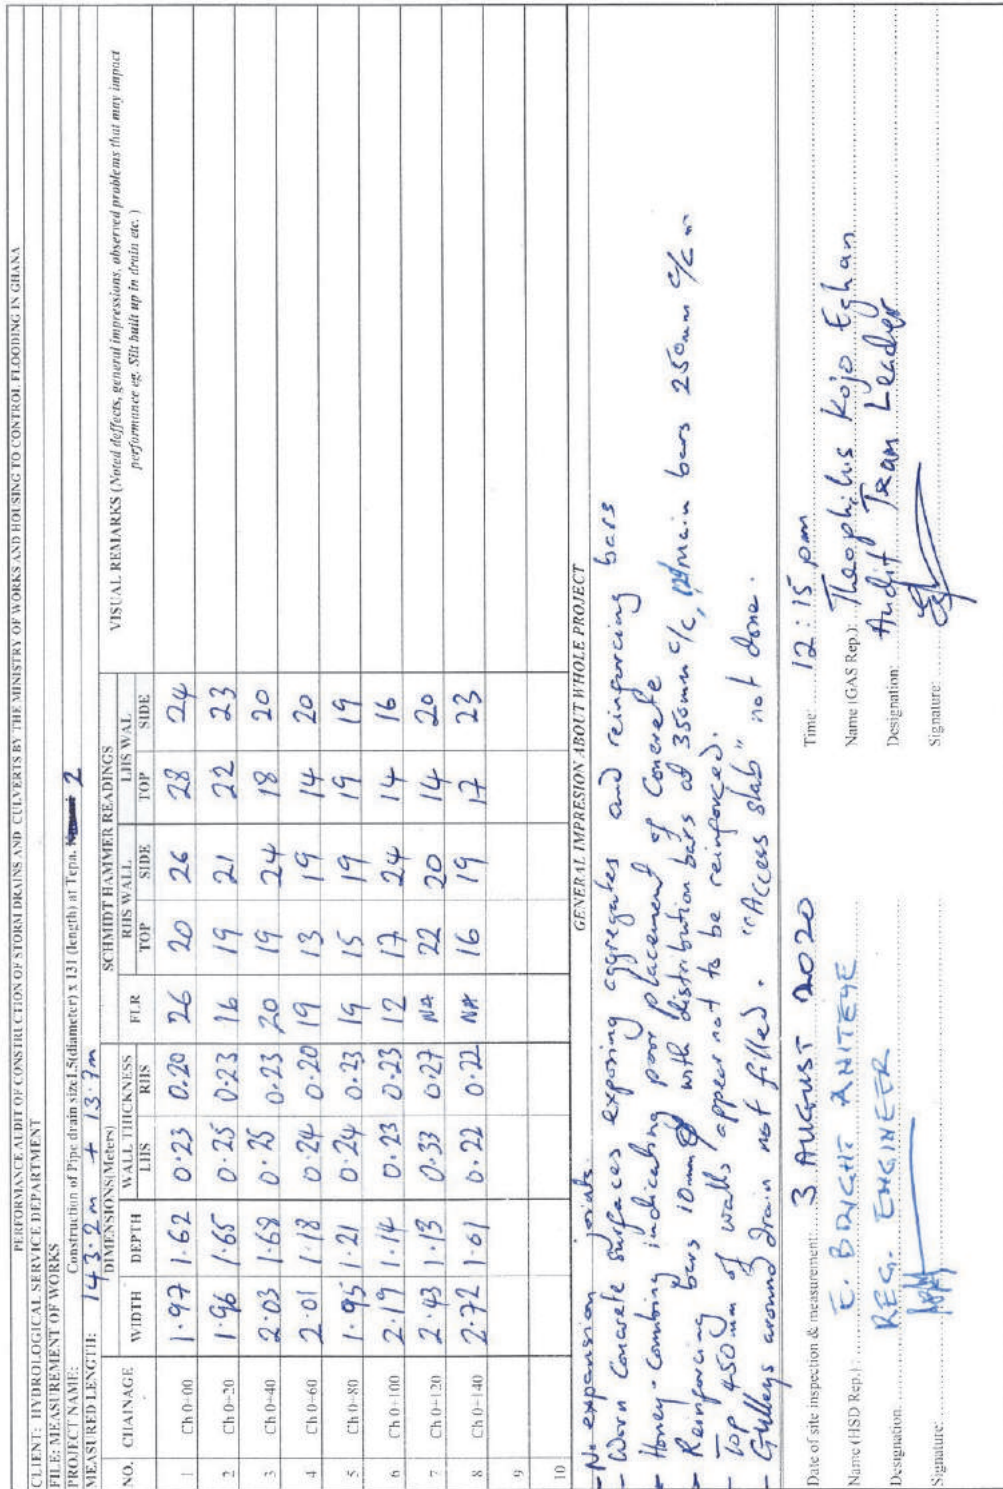 PERFORMANCE AUDIT OF CONSTRUCTION OF STORM DRAINS AND CULVERTS BY THE MINISTRY OF WORKS AND HOUSING TO CONTROL FLOODING IN GHANA
CLIENT: HYDROLOGICAL SERVICE DEPARTMENT
FILE: MEASUREMENT OF WORKS
PROJECT NAME: Construction of Pipe drain size1.5(diameter) x 131 (length) at Tepa. 2
MEASURED LENGTH: 143.2m + 13.7m
NO. CHAINAGE DIMENSIONS(Meters) SCHMIDT HAMMER READINGS VISUAL REMARKS (Noted deffects, general impressions, observed problems that may impact performance eg. Silt built up in drain etc. )
WIDTH DEPTH WALL THICKNESS FLR RHS WALL LHS WAL
LHS RHS TOP SIDE TOP SIDE
1 Ch 0+00 1.97 1.62 0.23 0.20 26 20 26 28 24
2 Ch 0+20 1.96 1.65 0.25 0.23 16 19 21 22 23
3 Ch 0+40 2.03 1.68 0.25 0.23 20 19 24 18 20
4 Ch 0+60 2.01 1.18 0.24 0.20 19 13 19 14 20
5 Ch 0+80 1.95 1.21 0.24 0.23 19 15 19 19 19
6 Ch 0+100 2.19 1.14 0.23 0.23 12 17 24 14 16
7 Ch 0+120 2.43 1.13 0.33 0.27 NA 22 20 14 20
8 Ch 0+140 2.72 1.61 0.22 0.22 NA 16 19 17 23
9
10
GENERAL IMPRESION ABOUT WHOLE PROJECT
- No expansion joints.
- Worn Concrete surfaces exposing aggregates and reinforcing bars
- Honey-Combing indicating poor placement of Concrete
- Reinforcing bars 10mm with distribution bars at 350mm c/c, main bars 250mm c/c
- Top 450mm of walls appear not to be reinforced.
- Gulleys around drain not filled. "Access slab" not done.
Date of site inspection & measurement: 3 AUGUST 2020
Time: 12:15 pm
Name (HSD Rep.): E. BRIGHT ANITEYE
Name (GAS Rep.): Theophilus Kojo Eghan
Designation: REG. ENGINEER
Designation: Audit Team Leader
Signature:
Signature: